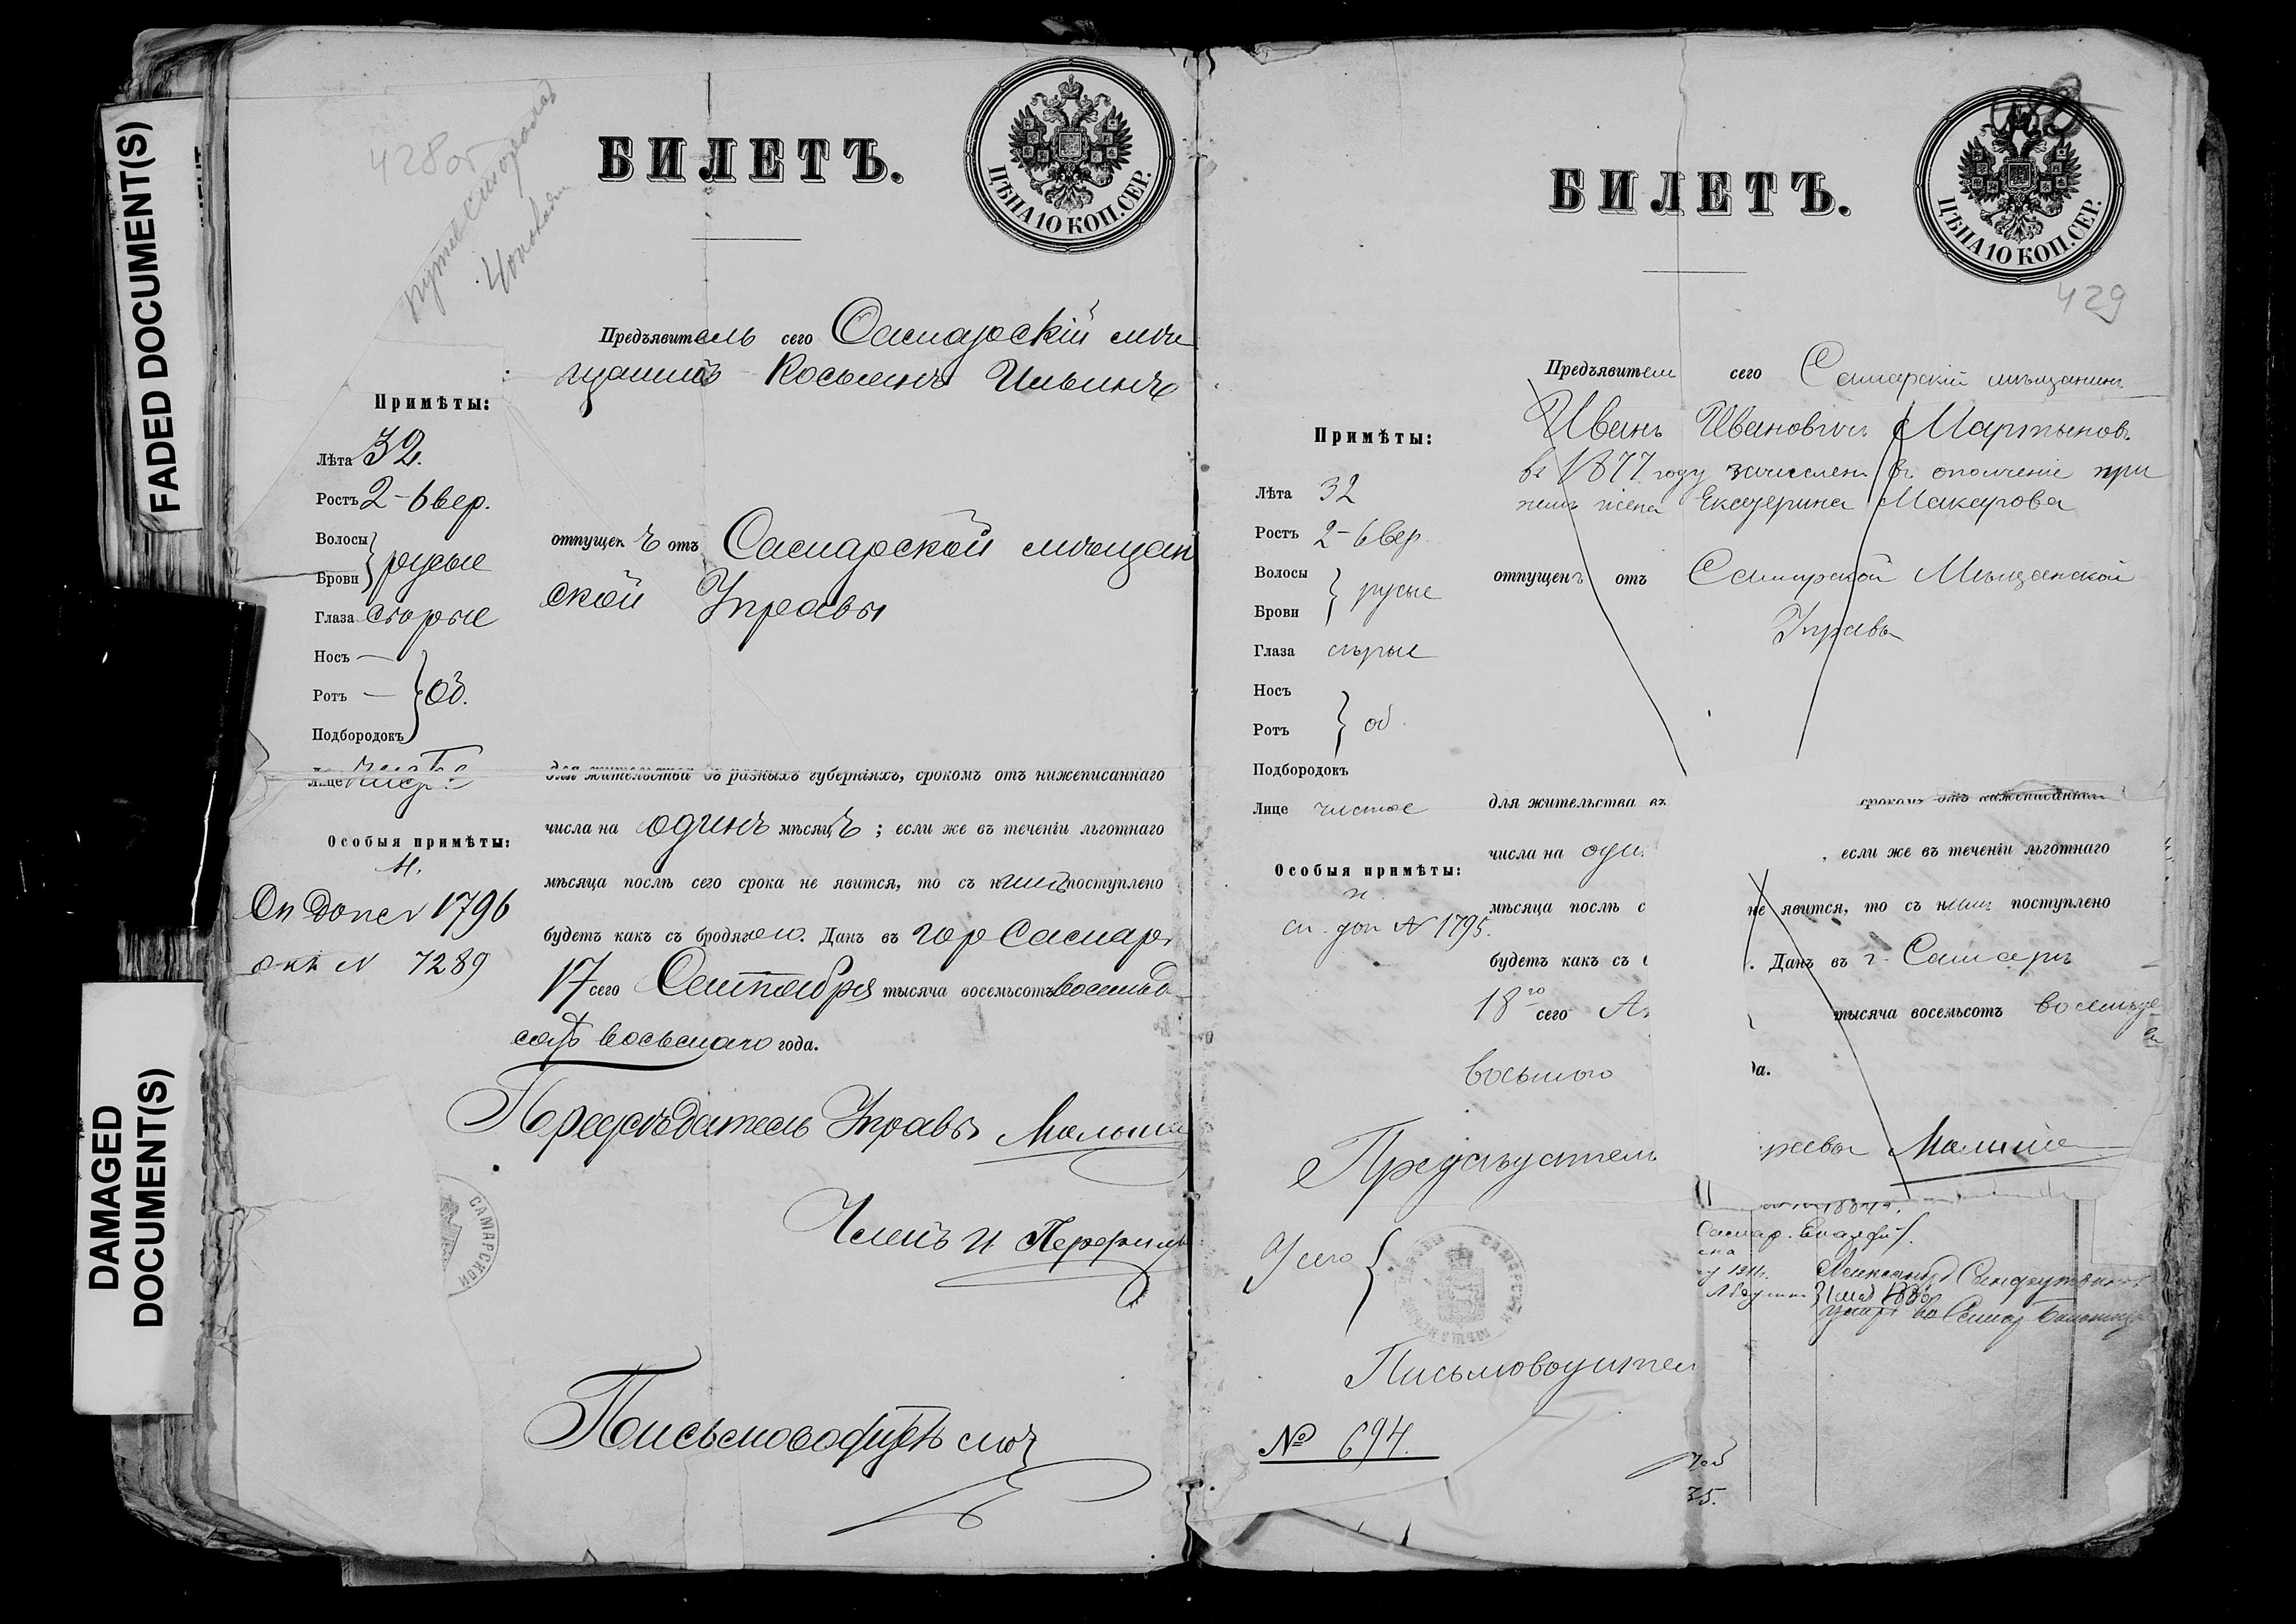 FADED DOCUMENT(S)
DAMAGED
DOCUMENT(S)
428об
БИЛЕТЪ.
ЦѢНА 10 КОП. СЕР.
Предъявитель сего Самарскій мѣ
щанинъ Косьма Ильинъ
Примѣты:
Лѣта 32.
Ростъ 2-6 вер.
Волосы
Брови } русые
Глаза сѣрые
Носъ —
Ротъ — } об.
Подбородокъ
Лице чистое
Особыя примѣты:
н.
Сп доп N 1796
окл N 7289
отпущенъ отъ Самарской мѣщан
ской Управы
для жительства въ разныхъ губерніяхъ, срокомъ отъ нижеписаннаго
числа на одинъ мѣсяцъ; если же въ теченіи льготнаго
мѣсяца послѣ сего срока не явится, то съ нимъ поступлено
будетъ какъ съ бродягою. Данъ въ гор Самарѣ
17 сего Сентября тысяча восемьсотъ восемьде
сятъ восьмаго года.
Предсѣдатель Управы Малыше
Членъ И.
САМАРСКОЙ
Письмоводитель
БИЛЕТЪ.
ЦѢНА 10 КОП. СЕР.
429
Предъявитель сего Самарскій мѣщанинъ
Иванъ Ивановичъ Мартыновъ
въ 1877 году зачисленъ въ ополченіе при
немъ жена Екатерина Макарова
Примѣты:
Лѣта 32
Ростъ 2-6 вер.
Волосы
Брови } русые
Глаза сѣрые
Носъ
Ротъ } об.
Подбородокъ
Лице чистое
Особыя примѣты:
н.
сп. доп N 1795.
отпущенъ отъ Самарской Мѣщанской
Управы
для жительства въ срокомъ отъ нижеписаннаго
числа на оди , если же въ теченіи льготнаго
мѣсяца послѣ с не явится, то съ нимъ поступлено
будетъ какъ съ . Данъ въ г. Самарѣ
18го сего тысяча восемьсотъ восемьде
восьмого да.
Предсѣдатель Малыше
САМАРСКАЯ
Письмоводител
№ 694.
Самар.
Александ
35.